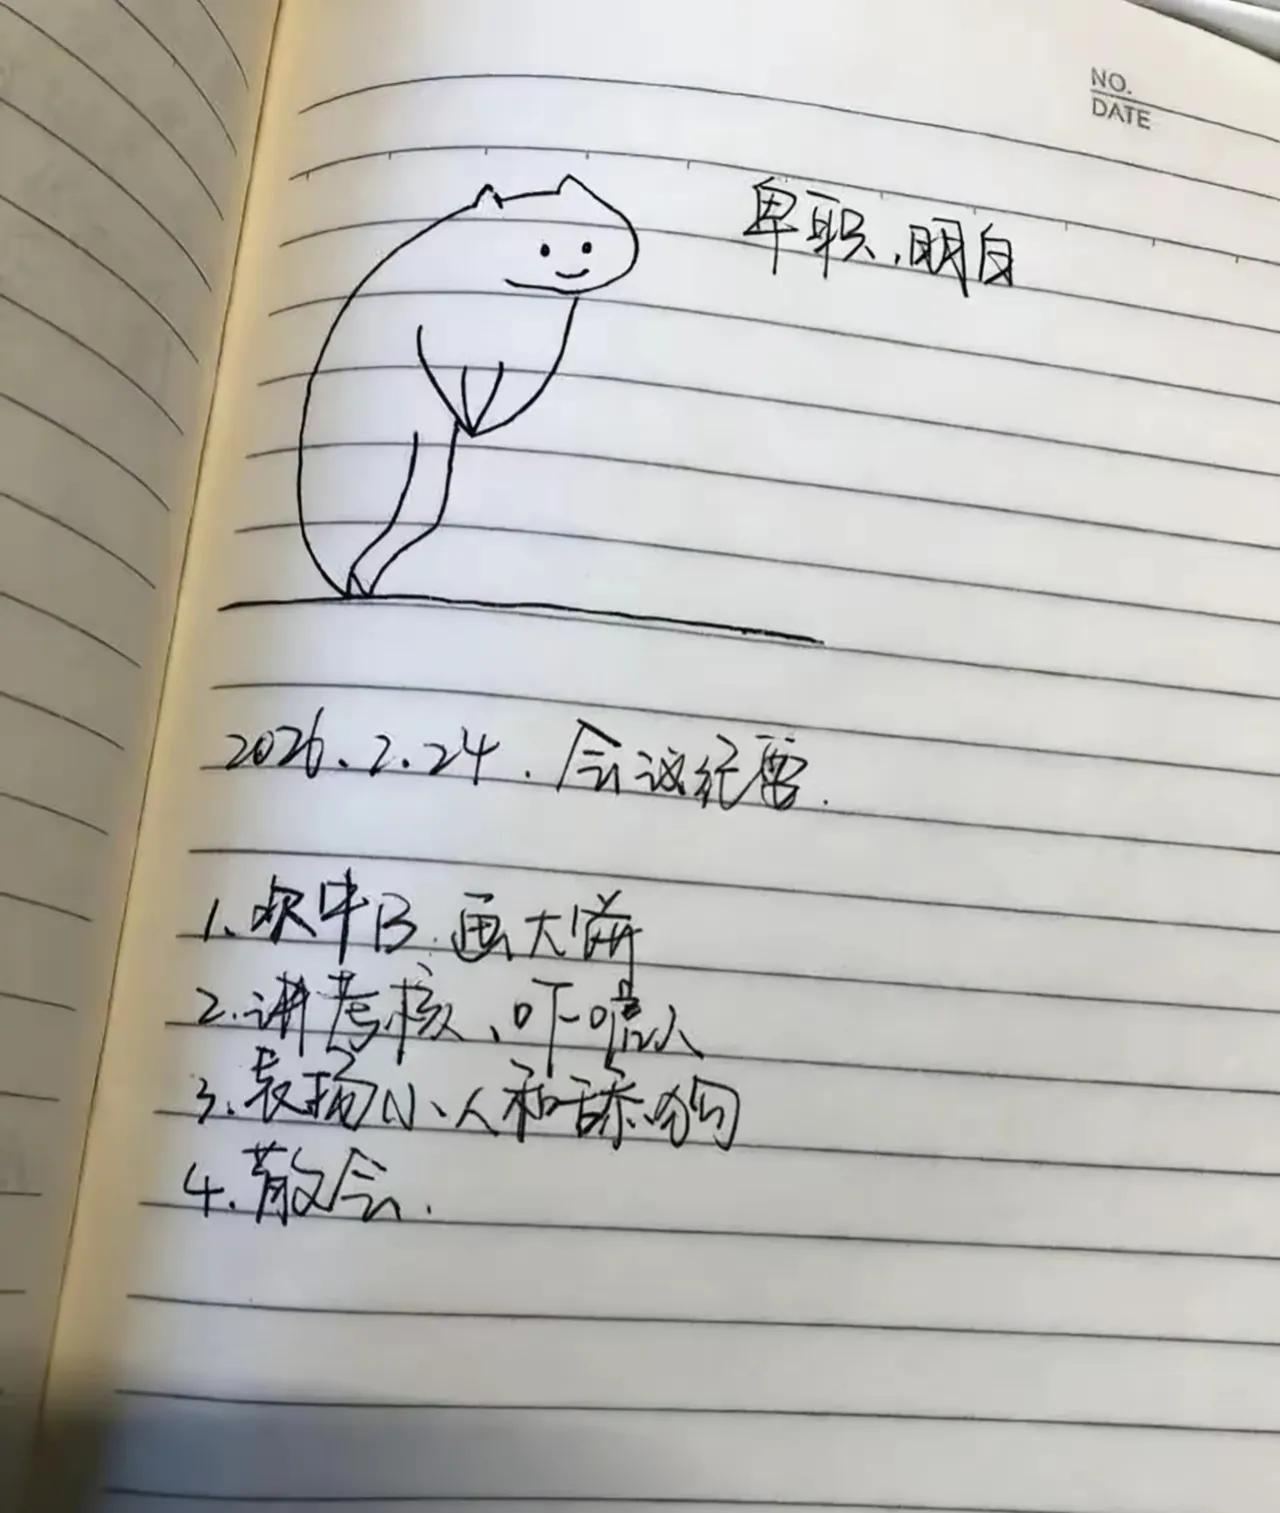 NO.
DATE
卑职,明白
2026.2.24.会议纪要.
1.吹牛B.画大饼
2.讲考核、吓唬人
3.表扬小人和舔狗
4.散会.